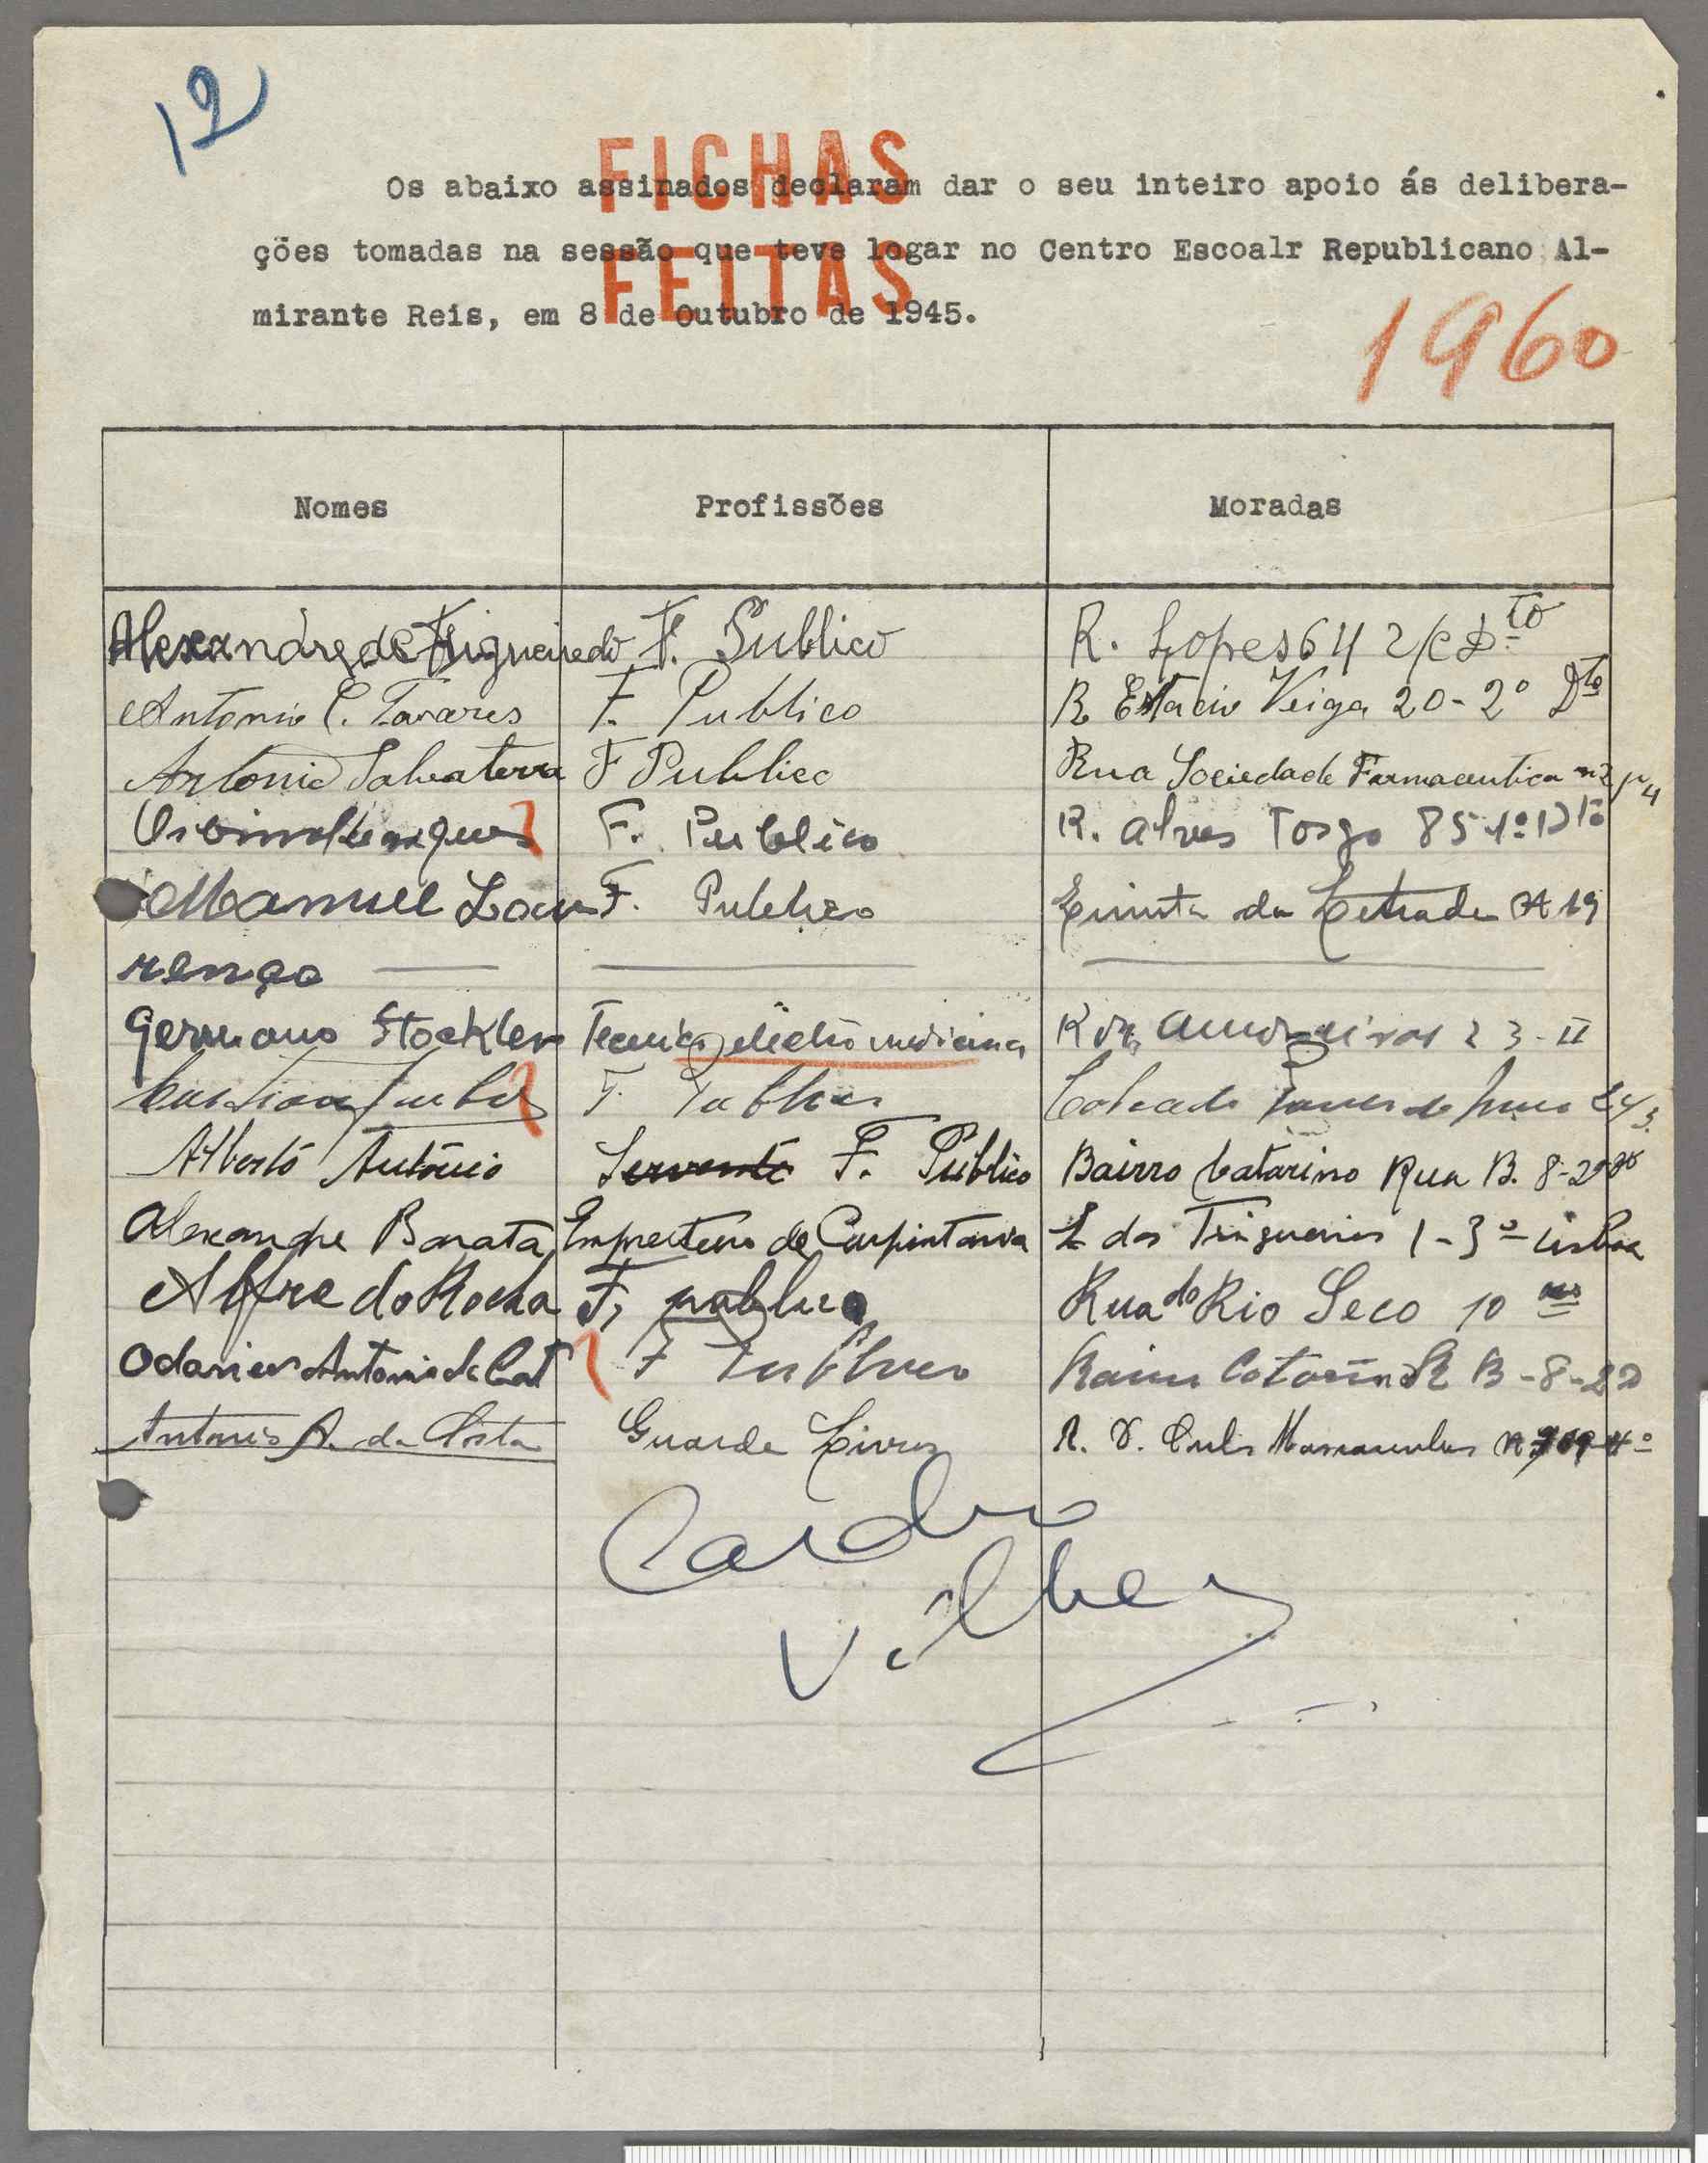 12
FICHAS
FEITAS
Os abaixo assinados declaram dar o seu inteiro apoio ás delibera-
ções tomadas na sessão que teve logar no Centro Escoalr Republicano Al-
mirante Reis, em 8 de Outubro de 1945.
1960
Nomes Profissões Moradas
Alexandre de Figueiredo F. Publico R. Lopes 64 r/c Dto
Antonio C. Tavares F. Publico R Estacio Veiga 20-2º Dto
Antonio Salvaterra F Publico Rua Sociedade Farmaceutica
F. Publico R. Alves Torgo 85 1º Dto
Manuel Lou F. Publico Quinta da 19
renço
Germano Stockler Tecnico electro medicina R das Amoreiras 23-II
F. Publico
Alberto António Servente F. Público Bairro Catarino Rua B. 8-2º
Alexandre Barata Empreiteiro de Carpintaria L dos Trigueiros 1-3º Lisboa
Alfredo Rocha F. publico Rua do Rio Seco 10
Antonio de F Publico R B-8-2
Antonio A. da Costa Guarda Livros R. D.